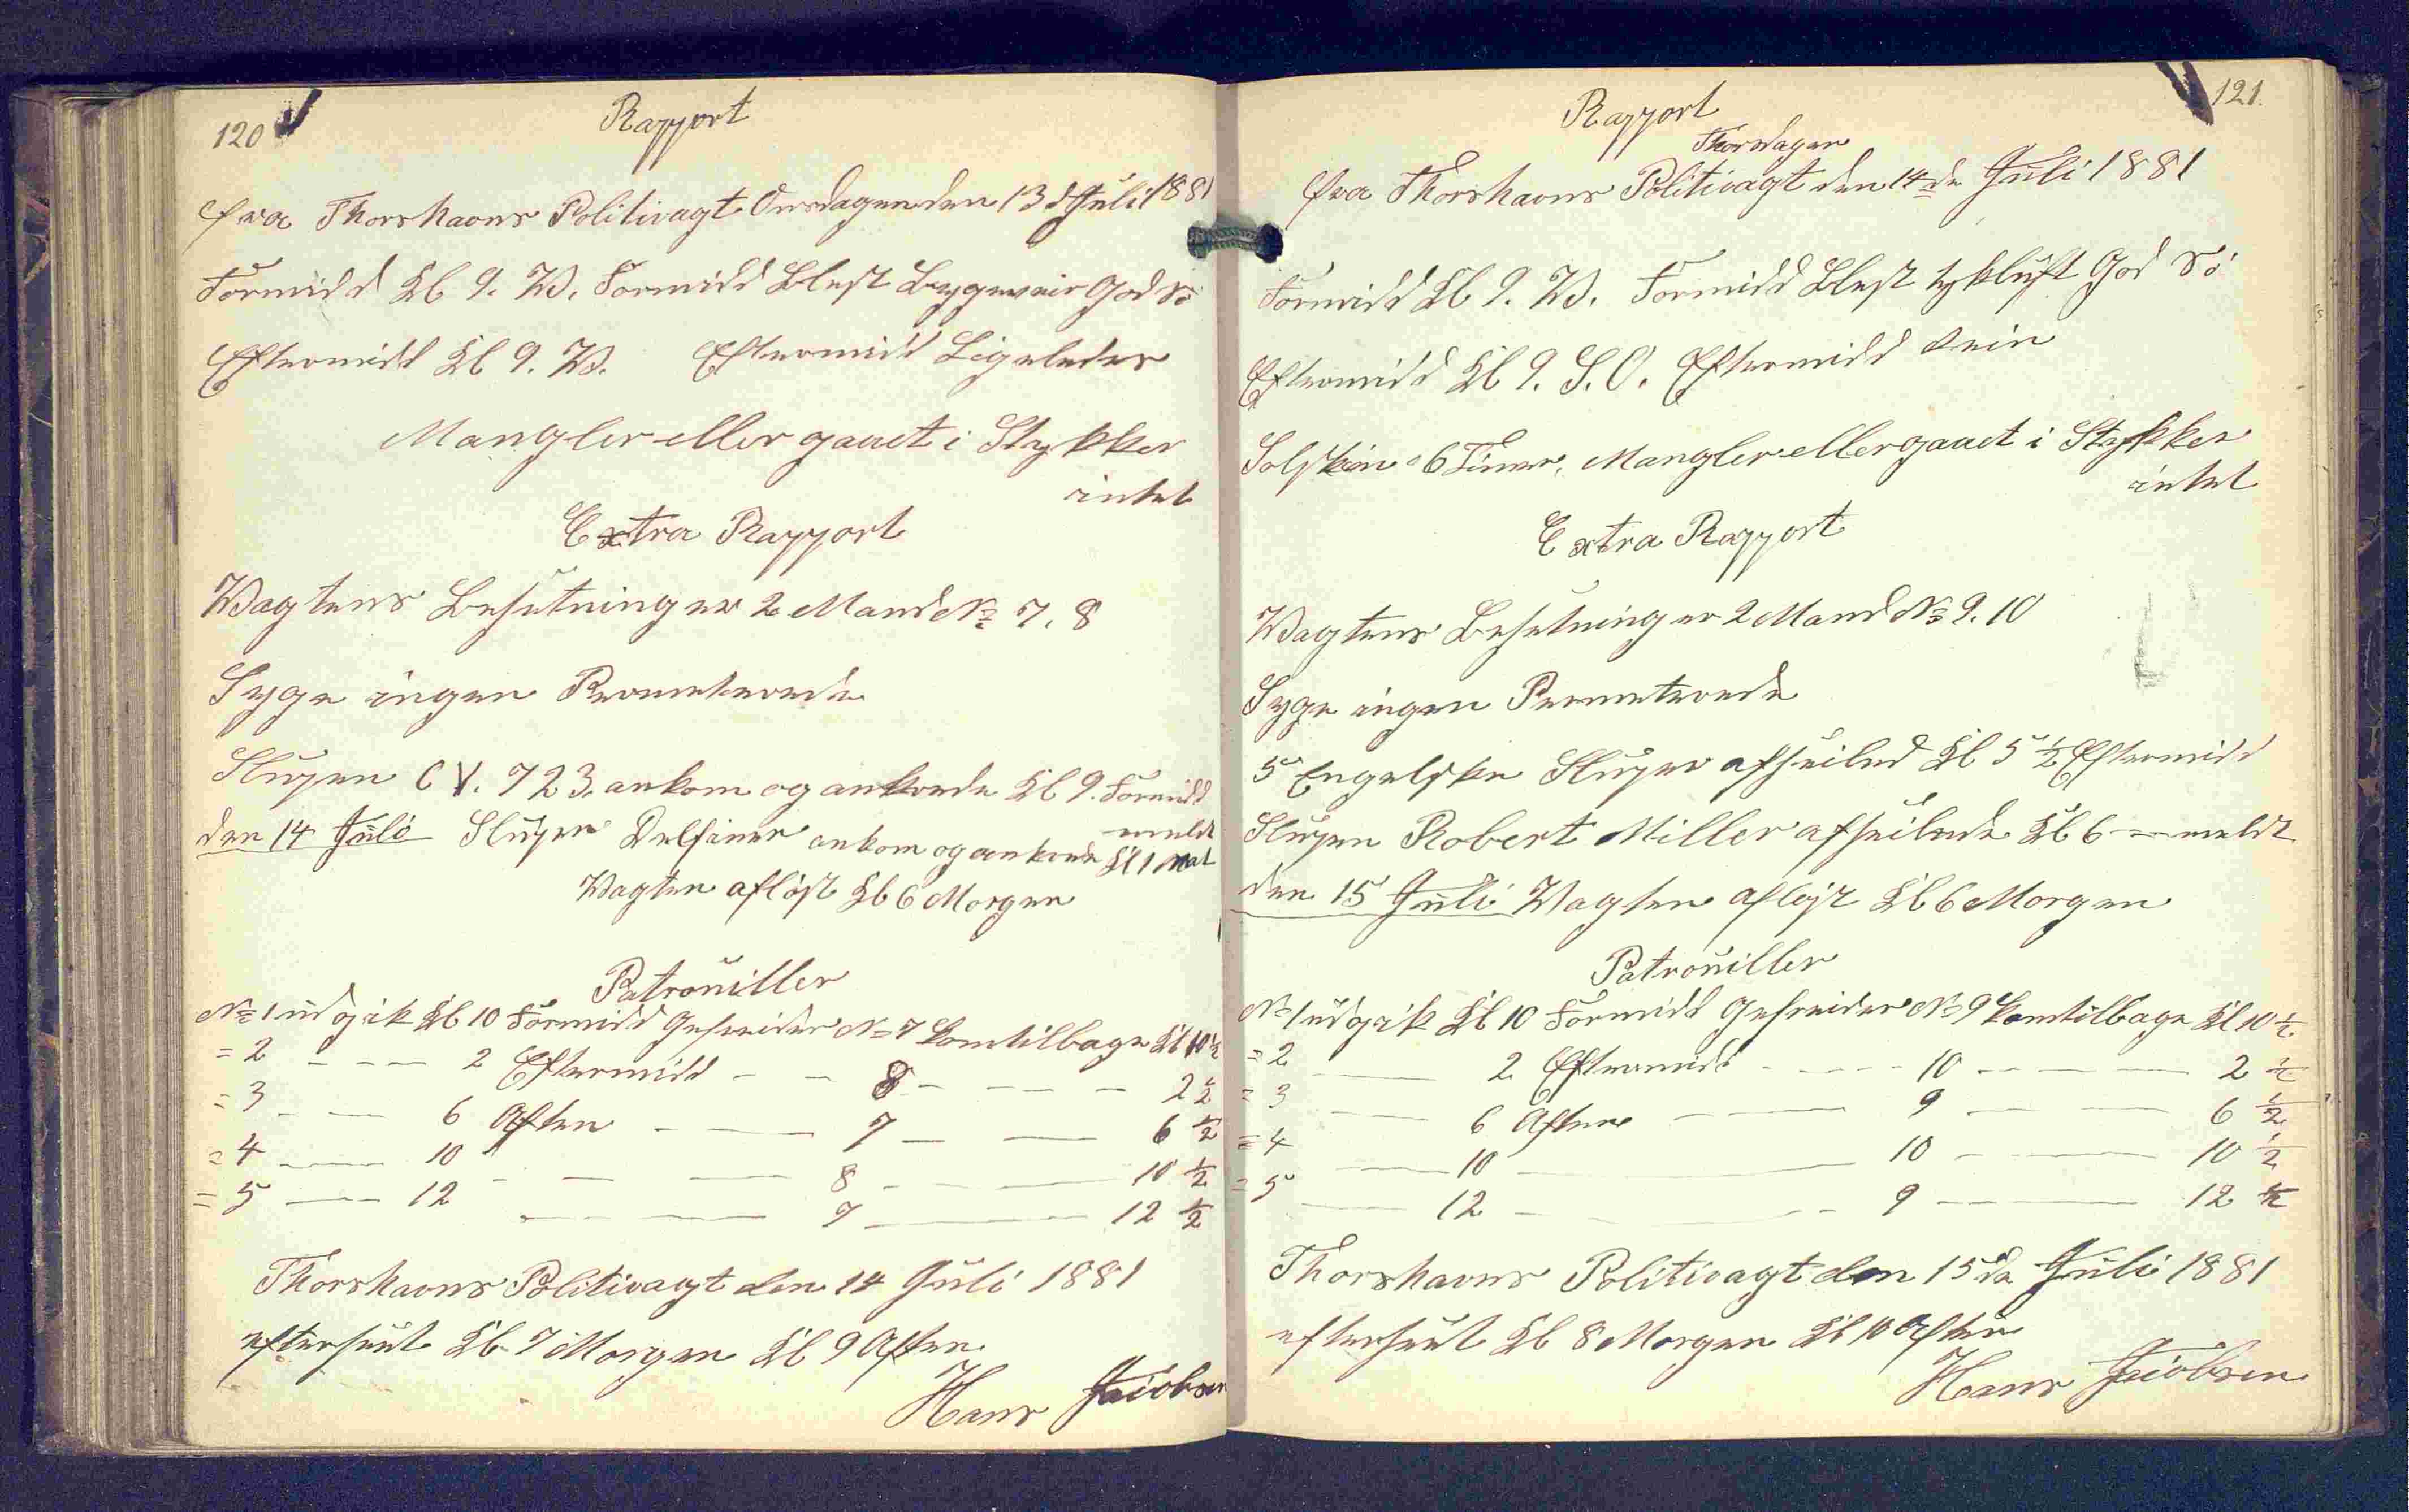 120
Rapport
fra Thorshavns Politivagt Onsdagen den 13 d Juli 1881
Formidd Kl 9. V. Formidd Blest Bygeveir God Sö
Eftermidd Kl 9. V. Eftermidd Ligeledes
Mangler eller gaaet i Stykker
intet
Extra Rapport
Wagtens Besetning er 2 Mand No 7, 8
Syge ingen Permeterede
Slupen C V. 723. ankom og ankrede Kl 9. Formidd
meldt
den 14 Juli Slupen Delfinen ankom og ankrede Kl 1 Nat
Wagten aflöst Kl 6 Morgen
Patrouiller
No 1 udgik Kl 10 Formidd Gefreider No 7 kom tilbage Kl 10 ½
= 2 - - - - 2 Eftermidd - - 8 - - - - 2 ½
= 3 - - 6 Aften - - 7 - - 6 ½
= 4 - - 10 - - - 8 - - 10 ½
= 5 - - 12 - - - 7 - - 12 ½
Thorshavns Politivagt den 14 Juli 1881
efterseet Kl 7 Morgen Kl 9 Aften
Hans Jacobsen
121.
Rapport
Thorsdagen
fra Thorshavns Politivagt den 14 de Juli 1881
Formidd Kl 9. V. Formidd Blest tykluft God Sö
Eftermidd Kl 9. S.O. Eftermidd Fein
Solskin 6 Timer, Mangler eller gaaet i Stykker
intet
Extra Rapport
Wagtens Besetning er 2 Mand No 9. 10
Syge ingen Permeterede
5 Engelske Sluper afseiled Kl 5 ½ Eftermidd
Slupen Robert Miller afseilede Kl 6 - meldt
den 15 Juli Wagten aflöst Kl 6 Morgen
Patrouiller
No 1 udgik Kl 10 Formidd Gefreider No 9 kom tilbage Kl 10 ½
= 2 - - 2 Eftermidd - - - 10 - - - 2 ½
= 3 - - 6 Aften - - 9 - - 6 ½
= 4 - - 10 - - 10 - - 10 ½
= 5 - - 12 - - - 9 - - 12 ½
Thorshavns Politivagt den 15 de Juli 1881
efterseet Kl 8 Morgen Kl 10 Aften
Hans Jacobsen